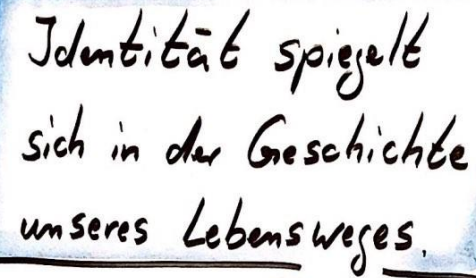 Identität spiegelt
sich in der Geschichte
unseres Lebensweges.